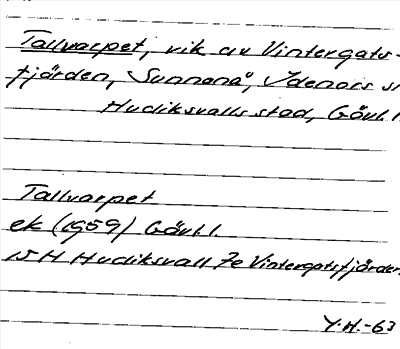 Tallvarpet, vik av Vintergats-
fjärden, Sunnanå, Idenors s
Hudiksvalls stad, Gävl. l.
Tallvarpet
ek (1959) Gävl. l.
15 H Hudiksvall 7e Vintergatsfjärden
Y.H.-63